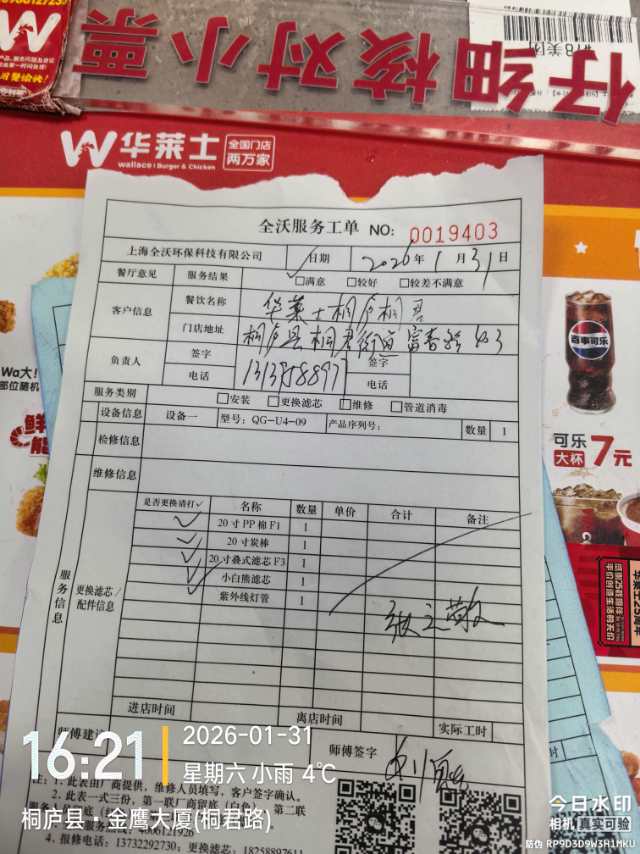 仔细核对小票
华莱士
wallace | Burger & Chicken
全国门店
两万家
全沃服务工单 NO: 0019403
上海全沃环保科技有限公司 日期 2026年1月31日
餐厅意见 服务结果 ✓□满意 □较好 □较差不满意
客户信息 餐饮名称 华莱士桐庐桐君
门店地址 桐庐县桐君街道富春路
负责人 签字 签字
电话 电话
服务类别 □安装 □更换滤芯 □维修 □管道消毒
设备信息 设备一 型号:QG-U4-09 产品序列号: 数量 1
检修信息
维修信息
服务信息
更换滤芯/配件信息
是否更换请打✓ 名称 数量 单价 合计 备注
✓ 20寸PP棉F1 1
✓ 20寸炭棒 1
✓ 20寸叠式滤芯F3 1
✓ 小白熊滤芯 1
紫外线灯管 1
进店时间 离店时间 实际工时
师傅建议 师傅签字
注:1、此表由厂商提供,维修人员填写,客户签字确认。
2、此表一式三份,第一联厂商留底(白色)、第二联
4、报修电话:13732292730;
百事可乐
可乐
大杯 7元
16:21
2026-01-31
星期六 小雨 4℃
桐庐县·金鹰大厦(桐君路)
今日水印
相机 真实可验
防伪 RP9D3D9W3H1MKU